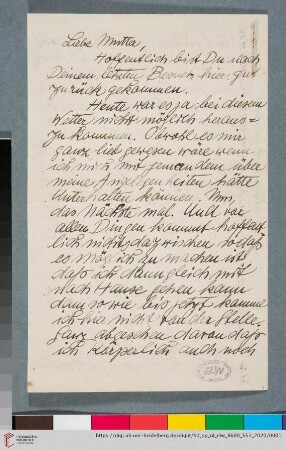 Liebe Mutter,
Hoffentlich bist Du nach
Deinem letzten Besuch hier gut
zurück gekommen.
Heute war es ja bei diesem
Wetter nicht möglich heraus=
zu kommen. Obwohl es mir
ganz lieb gewesen wäre wenn
ich mich mit jemandem über
meine Angelegenheiten hätte
unterhalten können. Nun,
das nächste mal. Und vor
allen Dingen kommt hoffent
lich nichts dazwischen sodass
es möglich zu machen ist
dass ich dann gleich mit
nach Hause gehen kann
denn so wie bis jetzt komme
ich hier nicht von der Stelle.
Ganz abgesehen davon dass
ich körperlich auch noch
SAMMLUNG
PRINZHORN
UNIVERSITÄTS-
BIBLIOTHEK
HEIDELBERG